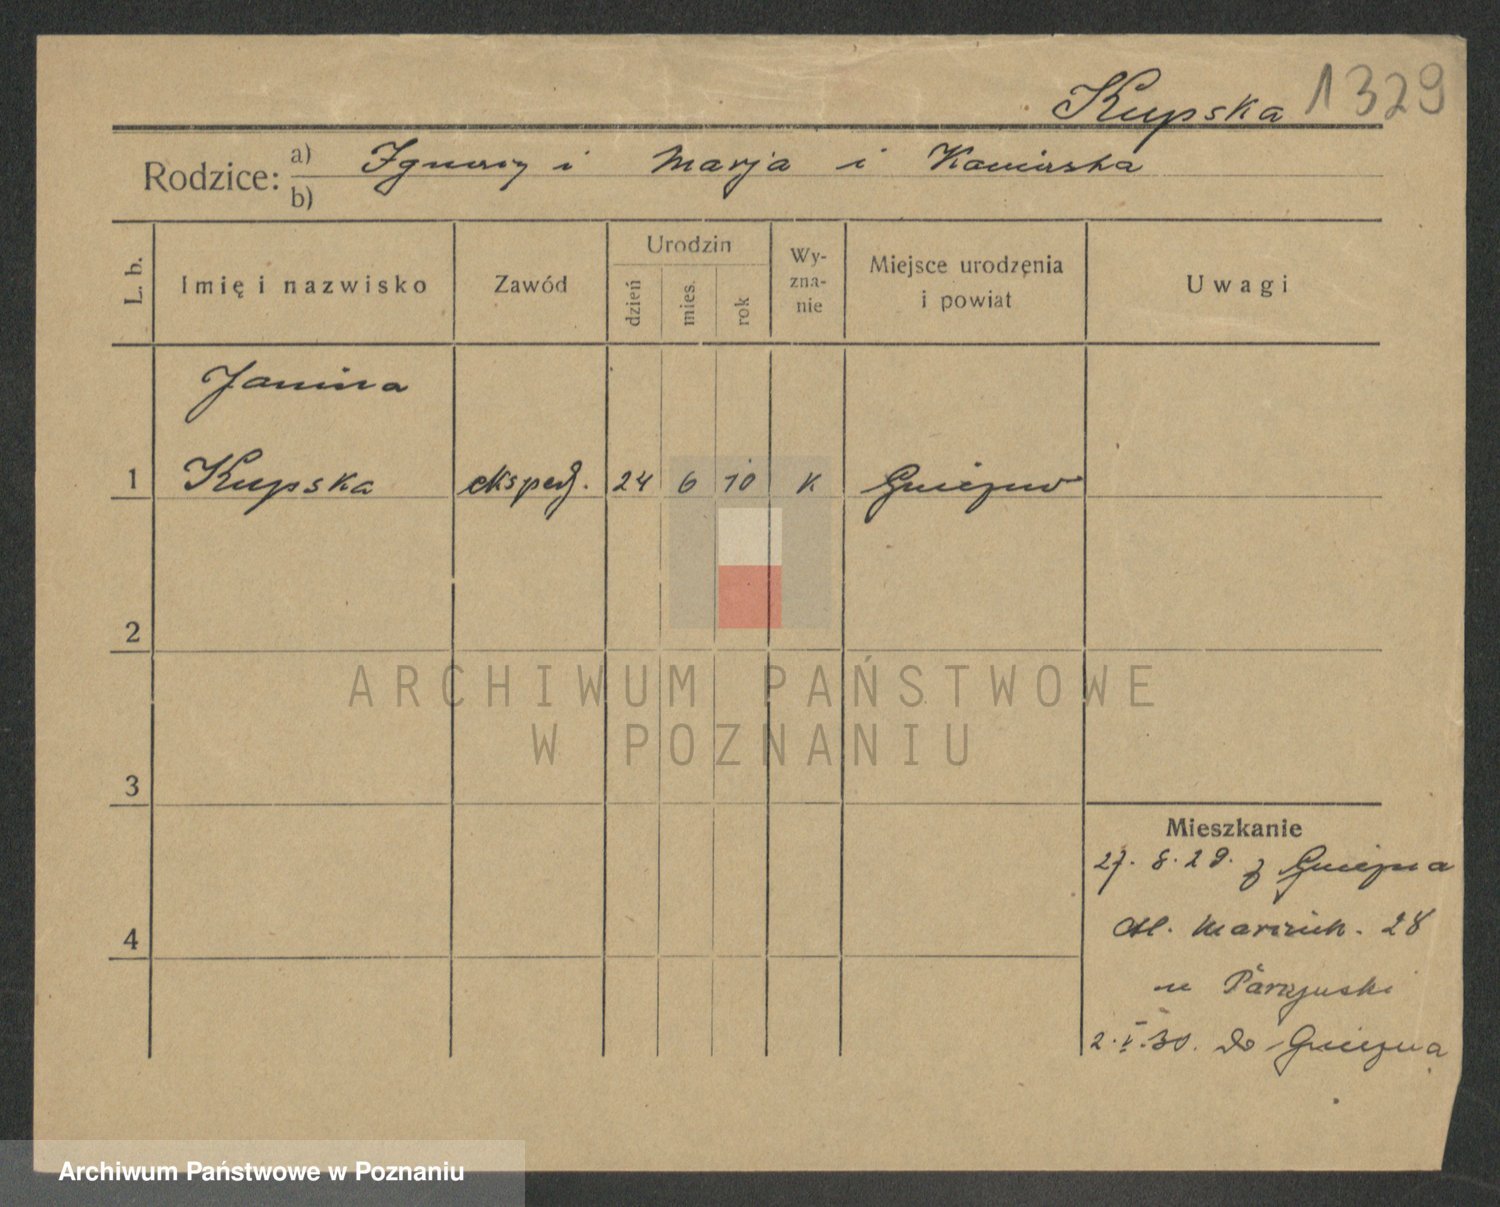 Kupska 1329
Rodzice: a) Ignacy i Marja i Kamińska
b)
L. b. Imię i nazwisko Zawód Urodzin dzień mies. rok Wy-zna-nie Miejsce urodzenia i powiat Uwagi
Janina
1 Kupska eksped. 24 6 10 K Gniezno
2
ARCHIWUM PAŃSTWOWE
W POZNANIU
3
Mieszkanie
27. 8. 29. z Gniezna
4 Al. Marcink. 28
u
2. I. 30. do Gniezna
Archiwum Państwowe w Poznaniu